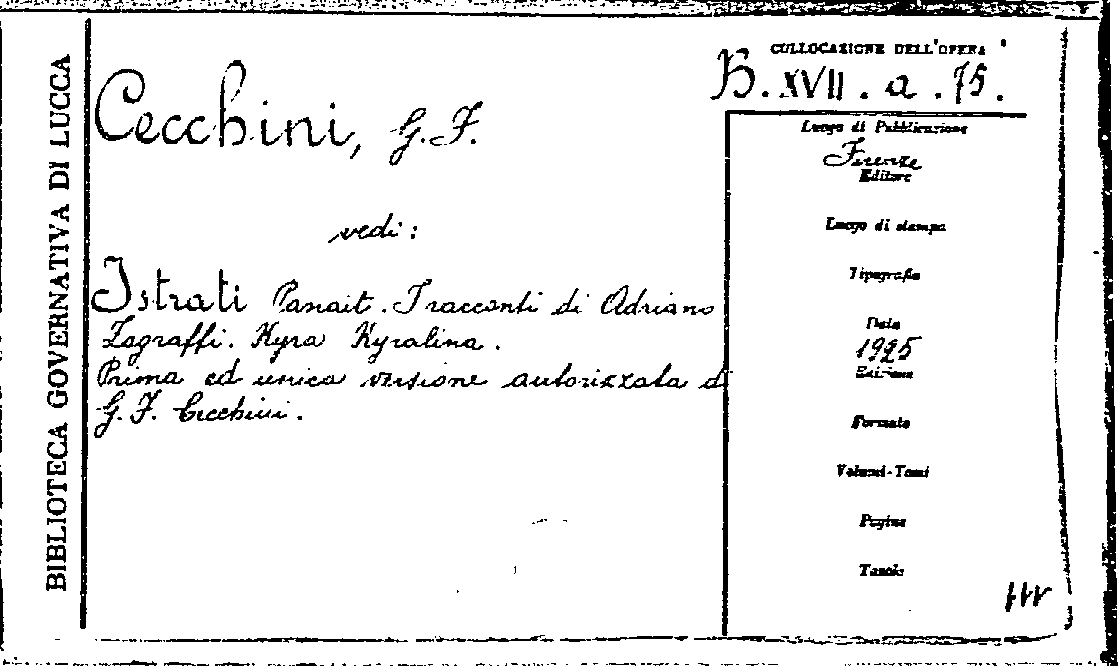 BIBLIOTECA GOVERNATIVA DI LUCCA
COLLOCAZIONE DELL'OPERA
B. XVII. a. 75.
Cecchini, G. F.
vedi:
Istrati Panait. I racconti di Adriano
Zagraffi. Kyra Kyralina.
Prima ed unica versione autorizzata d
G. F. Cecchini.
Luogo di Pubblicazione
Firenze
Editore
Luogo di stampa
Tipografia
Data
1925
Edizione
Formato
Volumi-Tomi
Pagine
Tavole